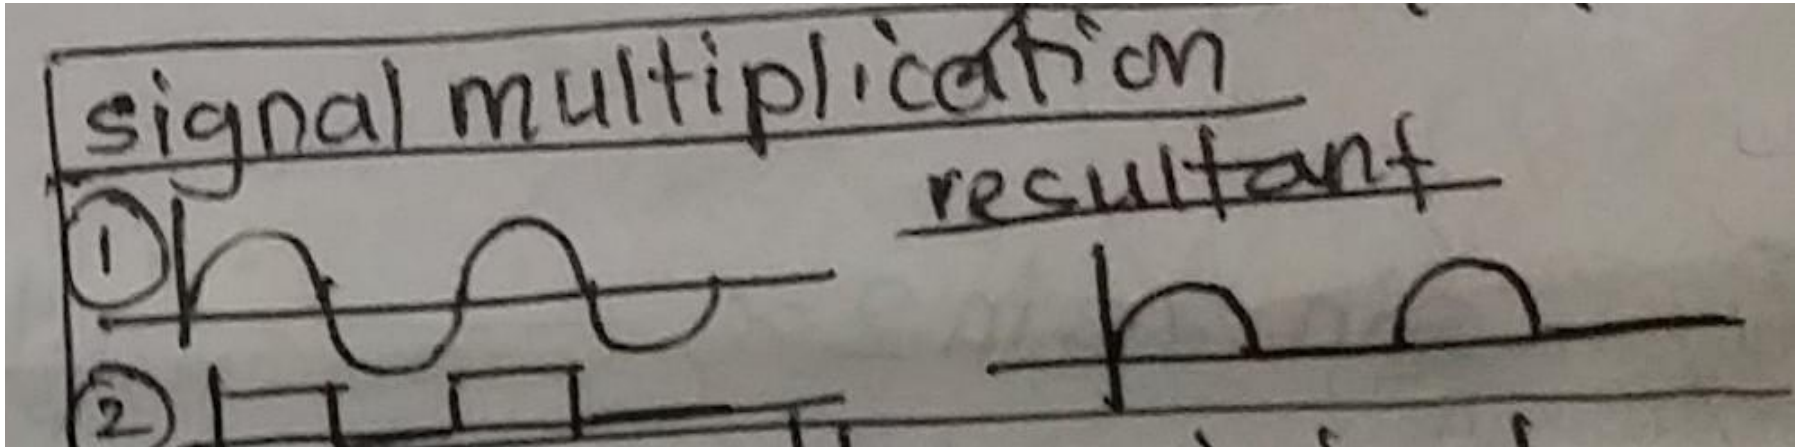 signal multiplication
resultant
1
2